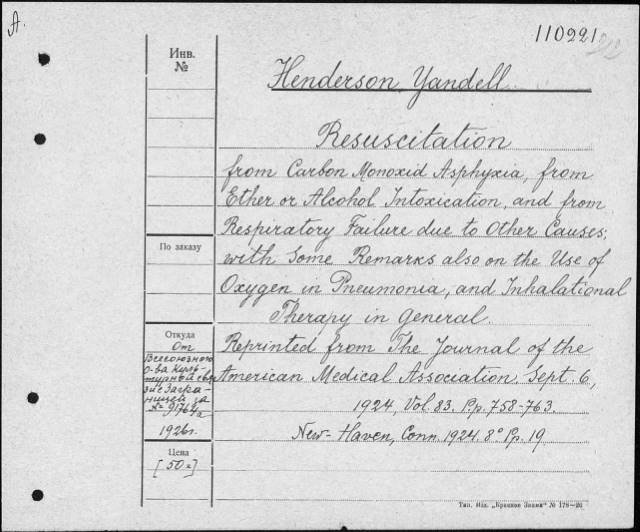 A.
110221
Инв.
№
Henderson, Yandell.
Resuscitation
from Carbon Monoxid Asphyxia, from
Ether or Alcohol Intoxication, and from
Respiratory Failure due to Other Causes;
with Some Remarks also on the Use of
По заказу
Oxygen in Pneumonia, and Inhalational
Therapy in General.
Откуда
От
Всесоюзного
о-ва Куль-
турной свя-
зи с Загра-
ницей за
1926г.
Reprinted from The Journal of the
American Medical Association. Sept. 6,
1924, Vol. 83. Pp. 758-763.
New-Haven, Conn. 1924. 8° Pp. 19
Цена
[50к]
Тип. Изд. „Красное Знамя“ № 178—26